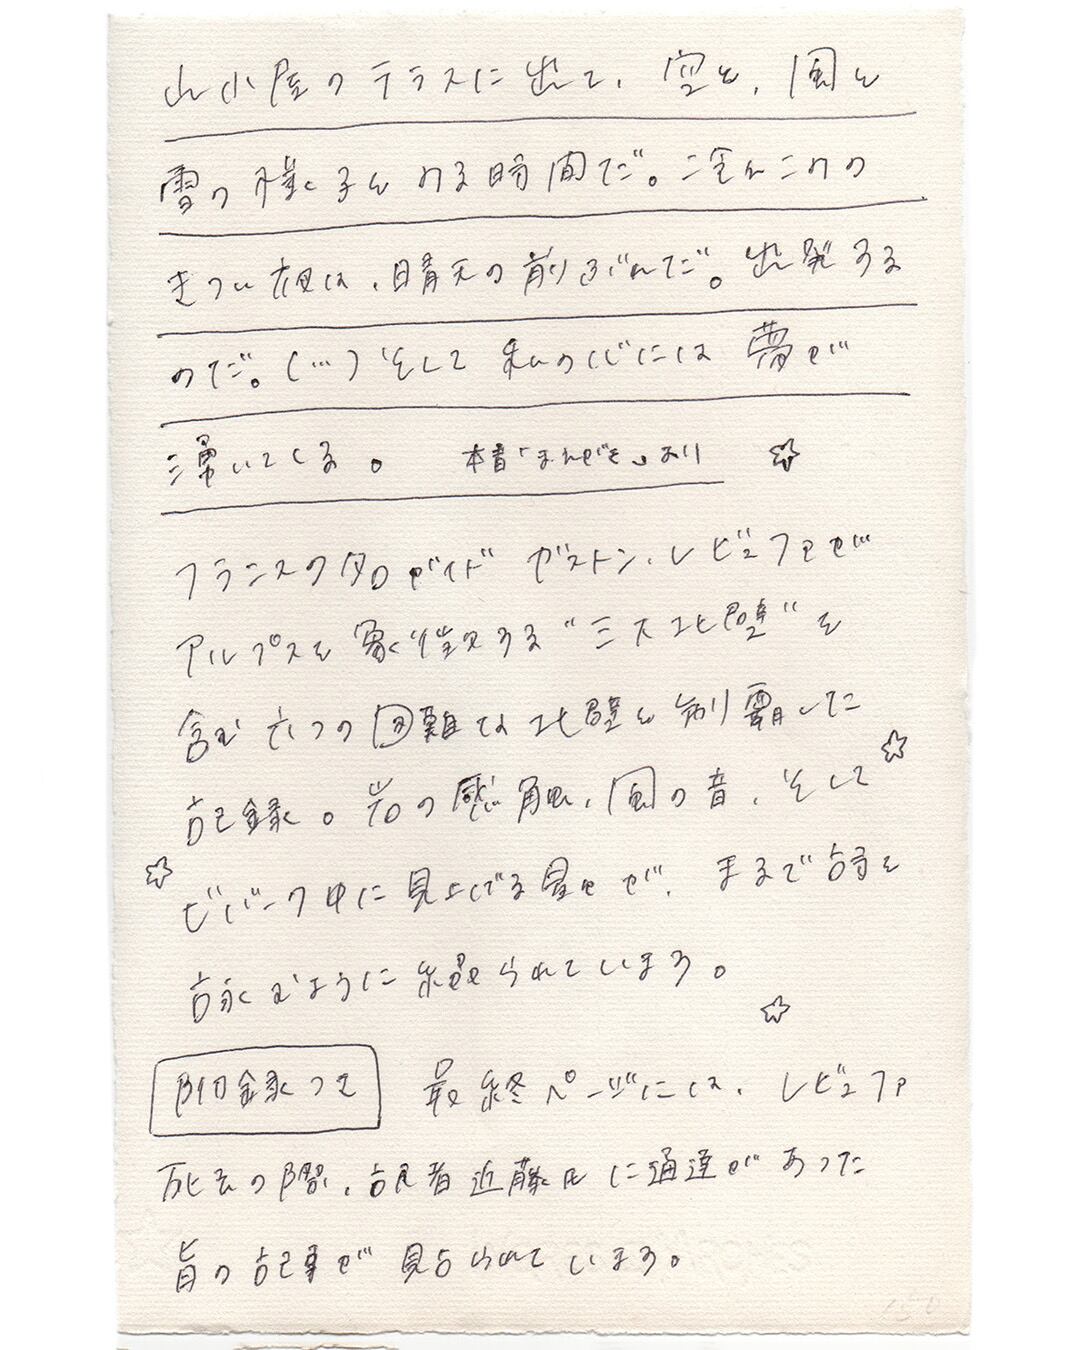 山小屋のテラスに出て、空と、風と
雪の様子をみる時間だ。冷えこみの
きつい夜は、晴天の前ぶれだ。出発する
のだ。(…)そして私の心には夢が
湧いてくる。 本書「まえがき」より
フランスの名ガイド ガストン・レビュファが
アルプスを象徴する"三大北壁"を
含む六つの困難な北壁を制覇した
記録。岩の感触、風の音、そして
ビバーク中に見上げる星々が、まるで詩を
詠むように綴られています。
附録つき 最終ページには、レビュファ
死去の際、訳者近藤氏に通達があった
旨の記事が見られています。